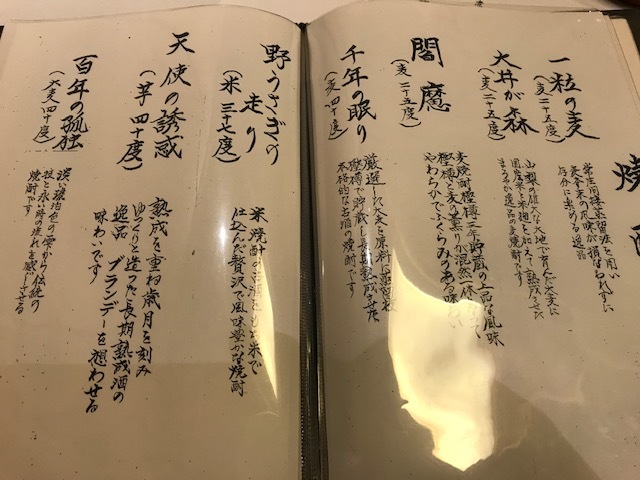 焼
一粒の麦
(麦二十五度)
常圧蒸溜法を用い
大井が森
(麦二十五度)
山梨の雄大な大地で育んだ大麦に
閻魔
(麦二十五度)
麦焼酎樫樽三年貯蔵の上品な風味
樫樽と麦の薫りが混然一体
やわらかでふくらみのある味わい
千年の眠り
(麦四十度)
厳選した大麦を原料に
樫樽で貯蔵し長期熟成させた
本格的な古酒の焼酎です
野うさぎの
走り
(米 三十七度)
米焼酎の古酒をもち米で
仕込んだ贅沢で風味豊かな焼酎
天使の誘惑
(芋 四十度)
熟成を重ね歳月を刻み
ゆっくりと造った長期熟成酒の
逸品 ブランデーを想わせる
味わいです
百年の孤独
(大麦四十度)
淡い琥珀色の雫から伝統の
技と永い時の流れを感じさせる
焼酎です